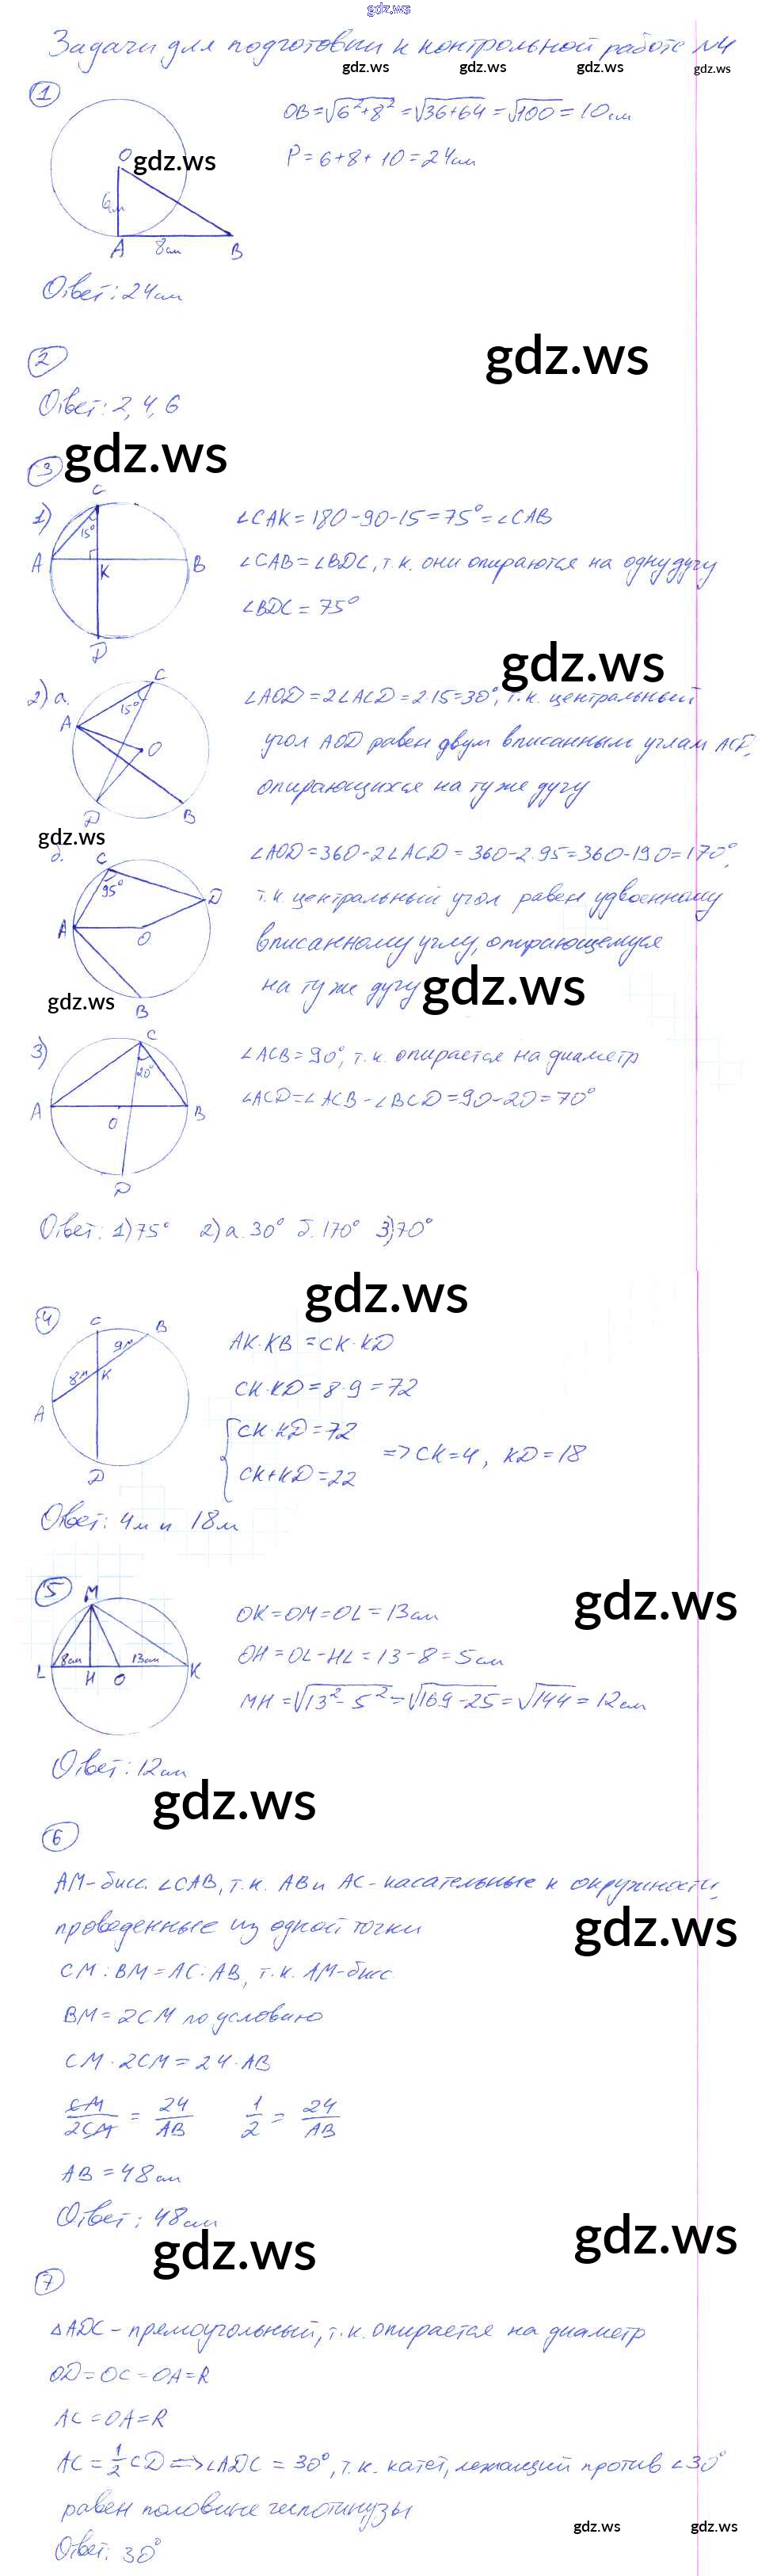 gdz.ws
Задачи для подготовки к контрольной работе №4
gdz.ws gdz.ws gdz.ws gdz.ws
1
OB=√6²+8² =√36+64 =√100 = 10см
P = 6+8+10=24см
O gdz.ws
6см
A 8см B
Ответ: 24см
gdz.ws
2
Ответ: 2, 4, 6
gdz.ws
3
1) C 15° A K B D
∠CAK = 180-90-15=75°=∠CAB
∠CAB=∠BDC, т.к. они опираются на одну дугу
∠BDC = 75°
gdz.ws
2) а. C 15° A O D B
∠AOD=2∠ACD=2·15=30°, т.к. центральный
угол AOD равен двум вписанным углам ACD,
опирающихся на ту же дугу
gdz.ws
б. C 95° D A O B
∠AOD=360-2∠ACD = 360-2·95=360-190=170°,
т.к. центральный угол равен удвоенному
вписанному углу, опирающемуся
на ту же дугу
gdz.ws
gdz.ws
3) C 20° A O B D
∠ACB=90°, т.к. опирается на диаметр
∠ACD=∠ACB-∠BCD=90-20=70°
Ответ: 1)75° 2) а. 30° б. 170° 3)70°
gdz.ws
4
C B 9м 8м K A D
AK·KB =CK·KD
CK·KD=8·9=72
CK·KD=72
CK+KD=22
=>CK=4, KD=18
Ответ: 4м и 18м
gdz.ws
5
M L 8см H O 13см K
OK=OM=OL=13см
OH=OL-HL=13-8=5см
MH =√13²-5²=√169-25=√144 = 12см
Ответ: 12см
gdz.ws
6
AM-бисс. ∠CAB, т.к. AB и AC-касательные к окружности,
проведенные из одной точки
gdz.ws
CM:BM=AC:AB, т.к. AM-бисс.
BM=2CM по условию
CM·2CM=24·AB
CM/2CM = 24/AB 1/2 = 24/AB
AB=48см
Ответ: 48см
gdz.ws
gdz.ws
7
△ADC-прямоугольный, т.к. опирается на диаметр
OD=OC=OA=R
AC=OA=R
AC=1/2CD=>∠ADC=30°, т.к. катет, лежащий против ∠30°
равен половине гипотинузы
gdz.ws gdz.ws
Ответ: 30°